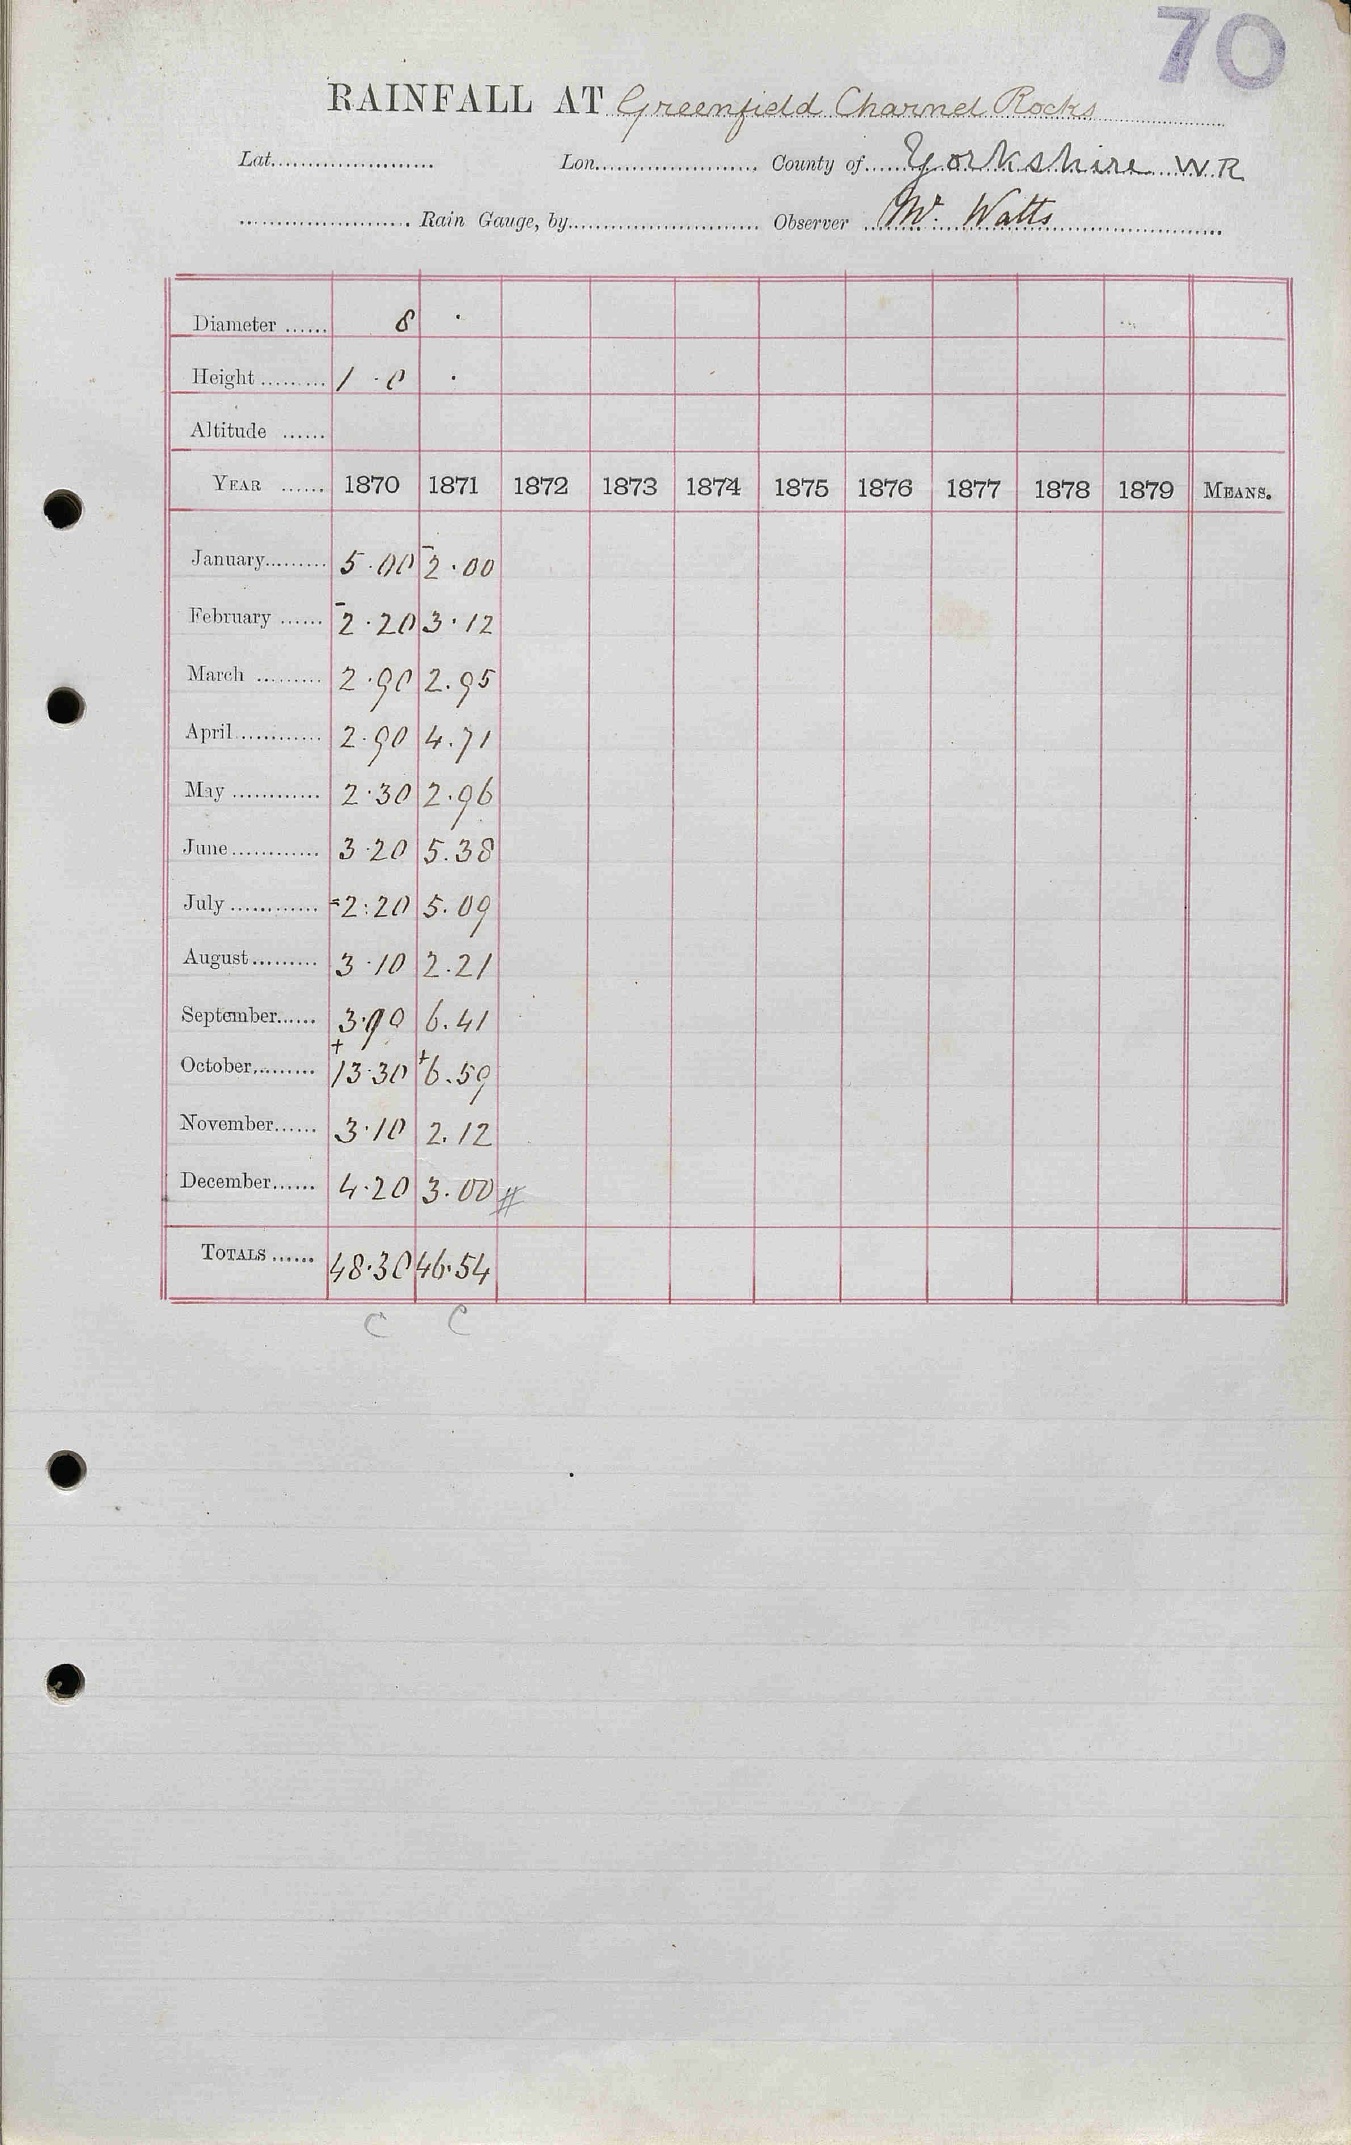 70
RAINFALL AT Greenfield Charnel Rocks
Lat. Lon. County of Yorkshire W.R
Rain Gauge, by Observer Mr. Watts
Diameter ...... 8 ·
Height ......... 1 · 0 ·
Altitude ......
YEAR ...... 1870 1871 1872 1873 1874 1875 1876 1877 1878 1879 MEANS.
January......... 5·00 -2·00
February ...... -2·20 3·12
March ......... 2·90 2.95
April............ 2·90 4.71
May ............ 2·30 2.96
June............ 3·20 5.38
July ............ =2·20 5.09
August......... 3·10 2.21
September...... 3·90 6.41
October......... +13·30 +6.59
November...... 3·10 2.12
December...... 4·20 3.00 #
TOTALS ...... 48·30 46·54
C C